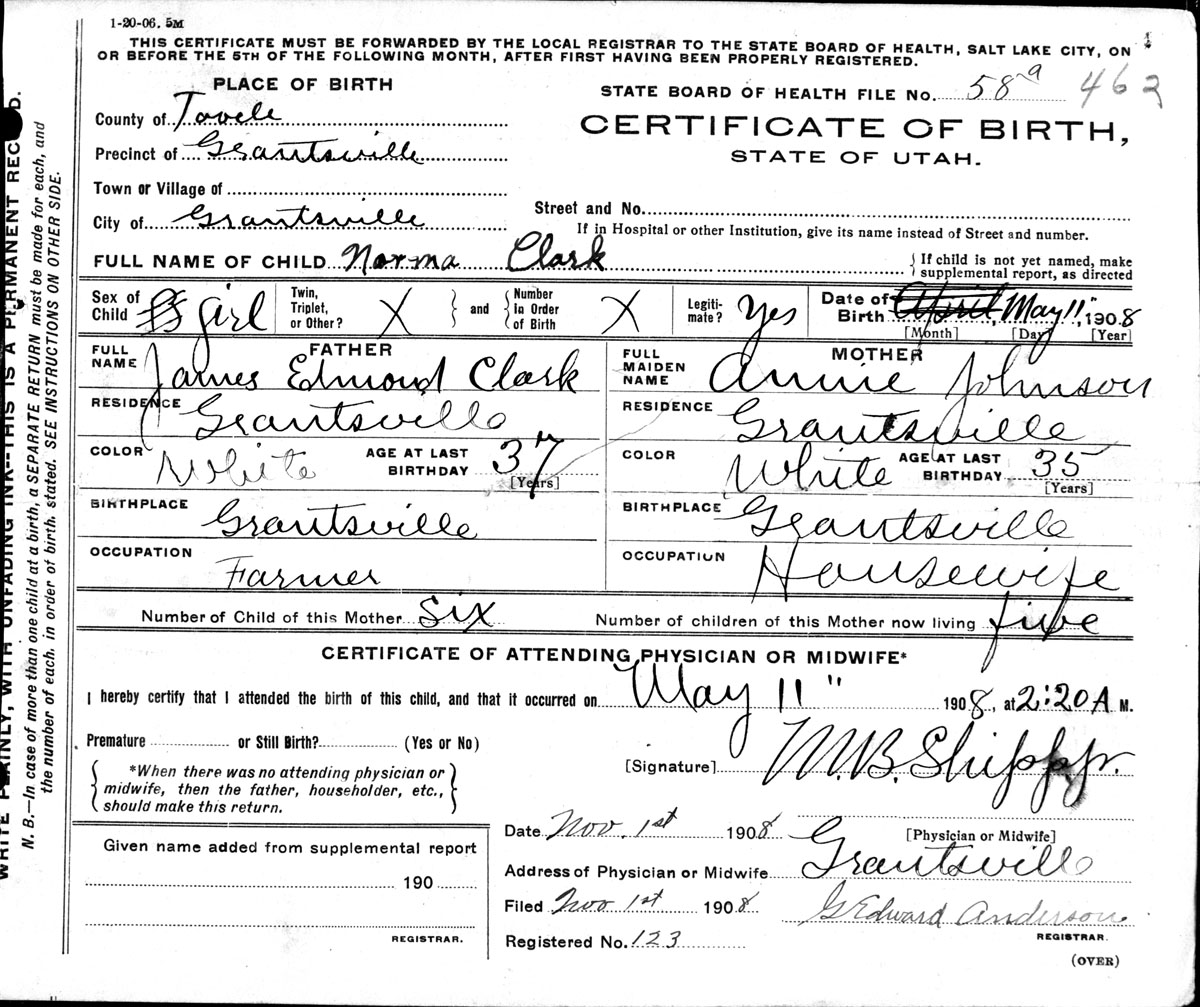 1-20-06. 5M
THIS CERTIFICATE MUST BE FORWARDED BY THE LOCAL REGISTRAR TO THE STATE BOARD OF HEALTH, SALT LAKE CITY, ON
OR BEFORE THE 5TH OF THE FOLLOWING MONTH, AFTER FIRST HAVING BEEN PROPERLY REGISTERED.
PLACE OF BIRTH
STATE BOARD OF HEALTH FILE No. 58 a 462
County of Tooele
CERTIFICATE OF BIRTH,
STATE OF UTAH.
Precinct of Grantsville
Town or Village of
City of Grantsville
Street and No.
If in Hospital or other Institution, give its name instead of Street and number.
FULL NAME OF CHILD Norma Clark
If child is not yet named, make
supplemental report, as directed
Sex of Child girl
Twin, Triplet, or Other? X
and
Number in Order of Birth X
Legiti-mate? Yes
Date of Birth April May 11", 1908
[Month] [Day] [Year]
FATHER
FULL NAME James Edmond Clark
RESIDENCE Grantsville
COLOR White AGE AT LAST BIRTHDAY 37
[Years]
BIRTHPLACE Grantsville
OCCUPATION Farmer
MOTHER
FULL MAIDEN NAME Annie Johnson
RESIDENCE Grantsville
COLOR White AGE AT LAST BIRTHDAY 35
[Years]
BIRTHPLACE Grantsville
OCCUPATION Housewife
Number of Child of this Mother Six Number of children of this Mother now living five
CERTIFICATE OF ATTENDING PHYSICIAN OR MIDWIFE*
I hereby certify that I attended the birth of this child, and that it occurred on May 11" 1908, at 2:20 A M.
Premature or Still Birth? (Yes or No)
*When there was no attending physician or
midwife, then the father, householder, etc.,
should make this return.
[Signature] M.B. Shipp Jr.
[Physician or Midwife]
Given name added from supplemental report
190
REGISTRAR.
Date Nov. 1st 1908
Address of Physician or Midwife Grantsville
Filed Nov 1st 1908 G Edward Anderson
REGISTRAR.
Registered No. 123
(OVER)
WRITE PLAINLY, WITH UNFADING INK--THIS IS A PERMANENT RECORD.
N. B.—In case of more than one child at a birth, a SEPARATE RETURN must be made for each, and
the number of each, in order of birth, stated. SEE INSTRUCTIONS ON OTHER SIDE.